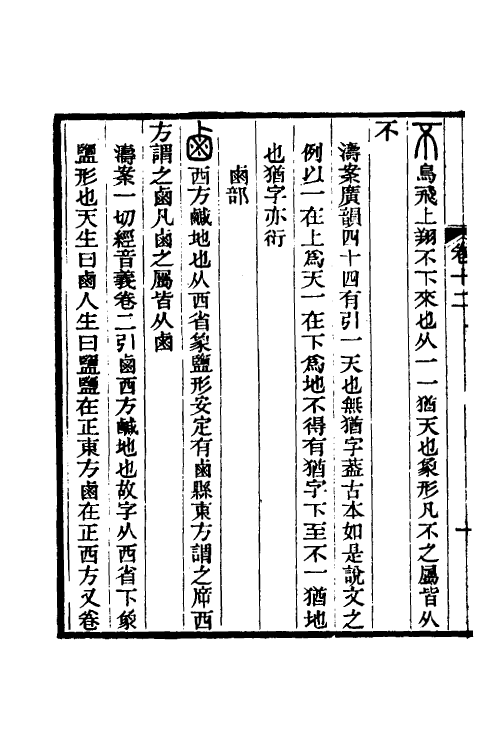 卷十二
不鳥飛上翔不下來也从一一猶天也象形凡不之屬皆从
不
濤案廣韻四十四有引一天也無猶字葢古本如是說文之
例以一在上爲天一在下爲地不得有猶字下至不一猶地
也猶字亦衍
鹵部
鹵西方鹹地也从西省象鹽形安定有鹵縣東方謂之㡿西
方謂之鹵凡鹵之屬皆从鹵
濤案一切經音義卷二引鹵西方鹹地也故字从西省下象
鹽形也天生曰鹵人生曰鹽鹽在正東方鹵在正西方又卷